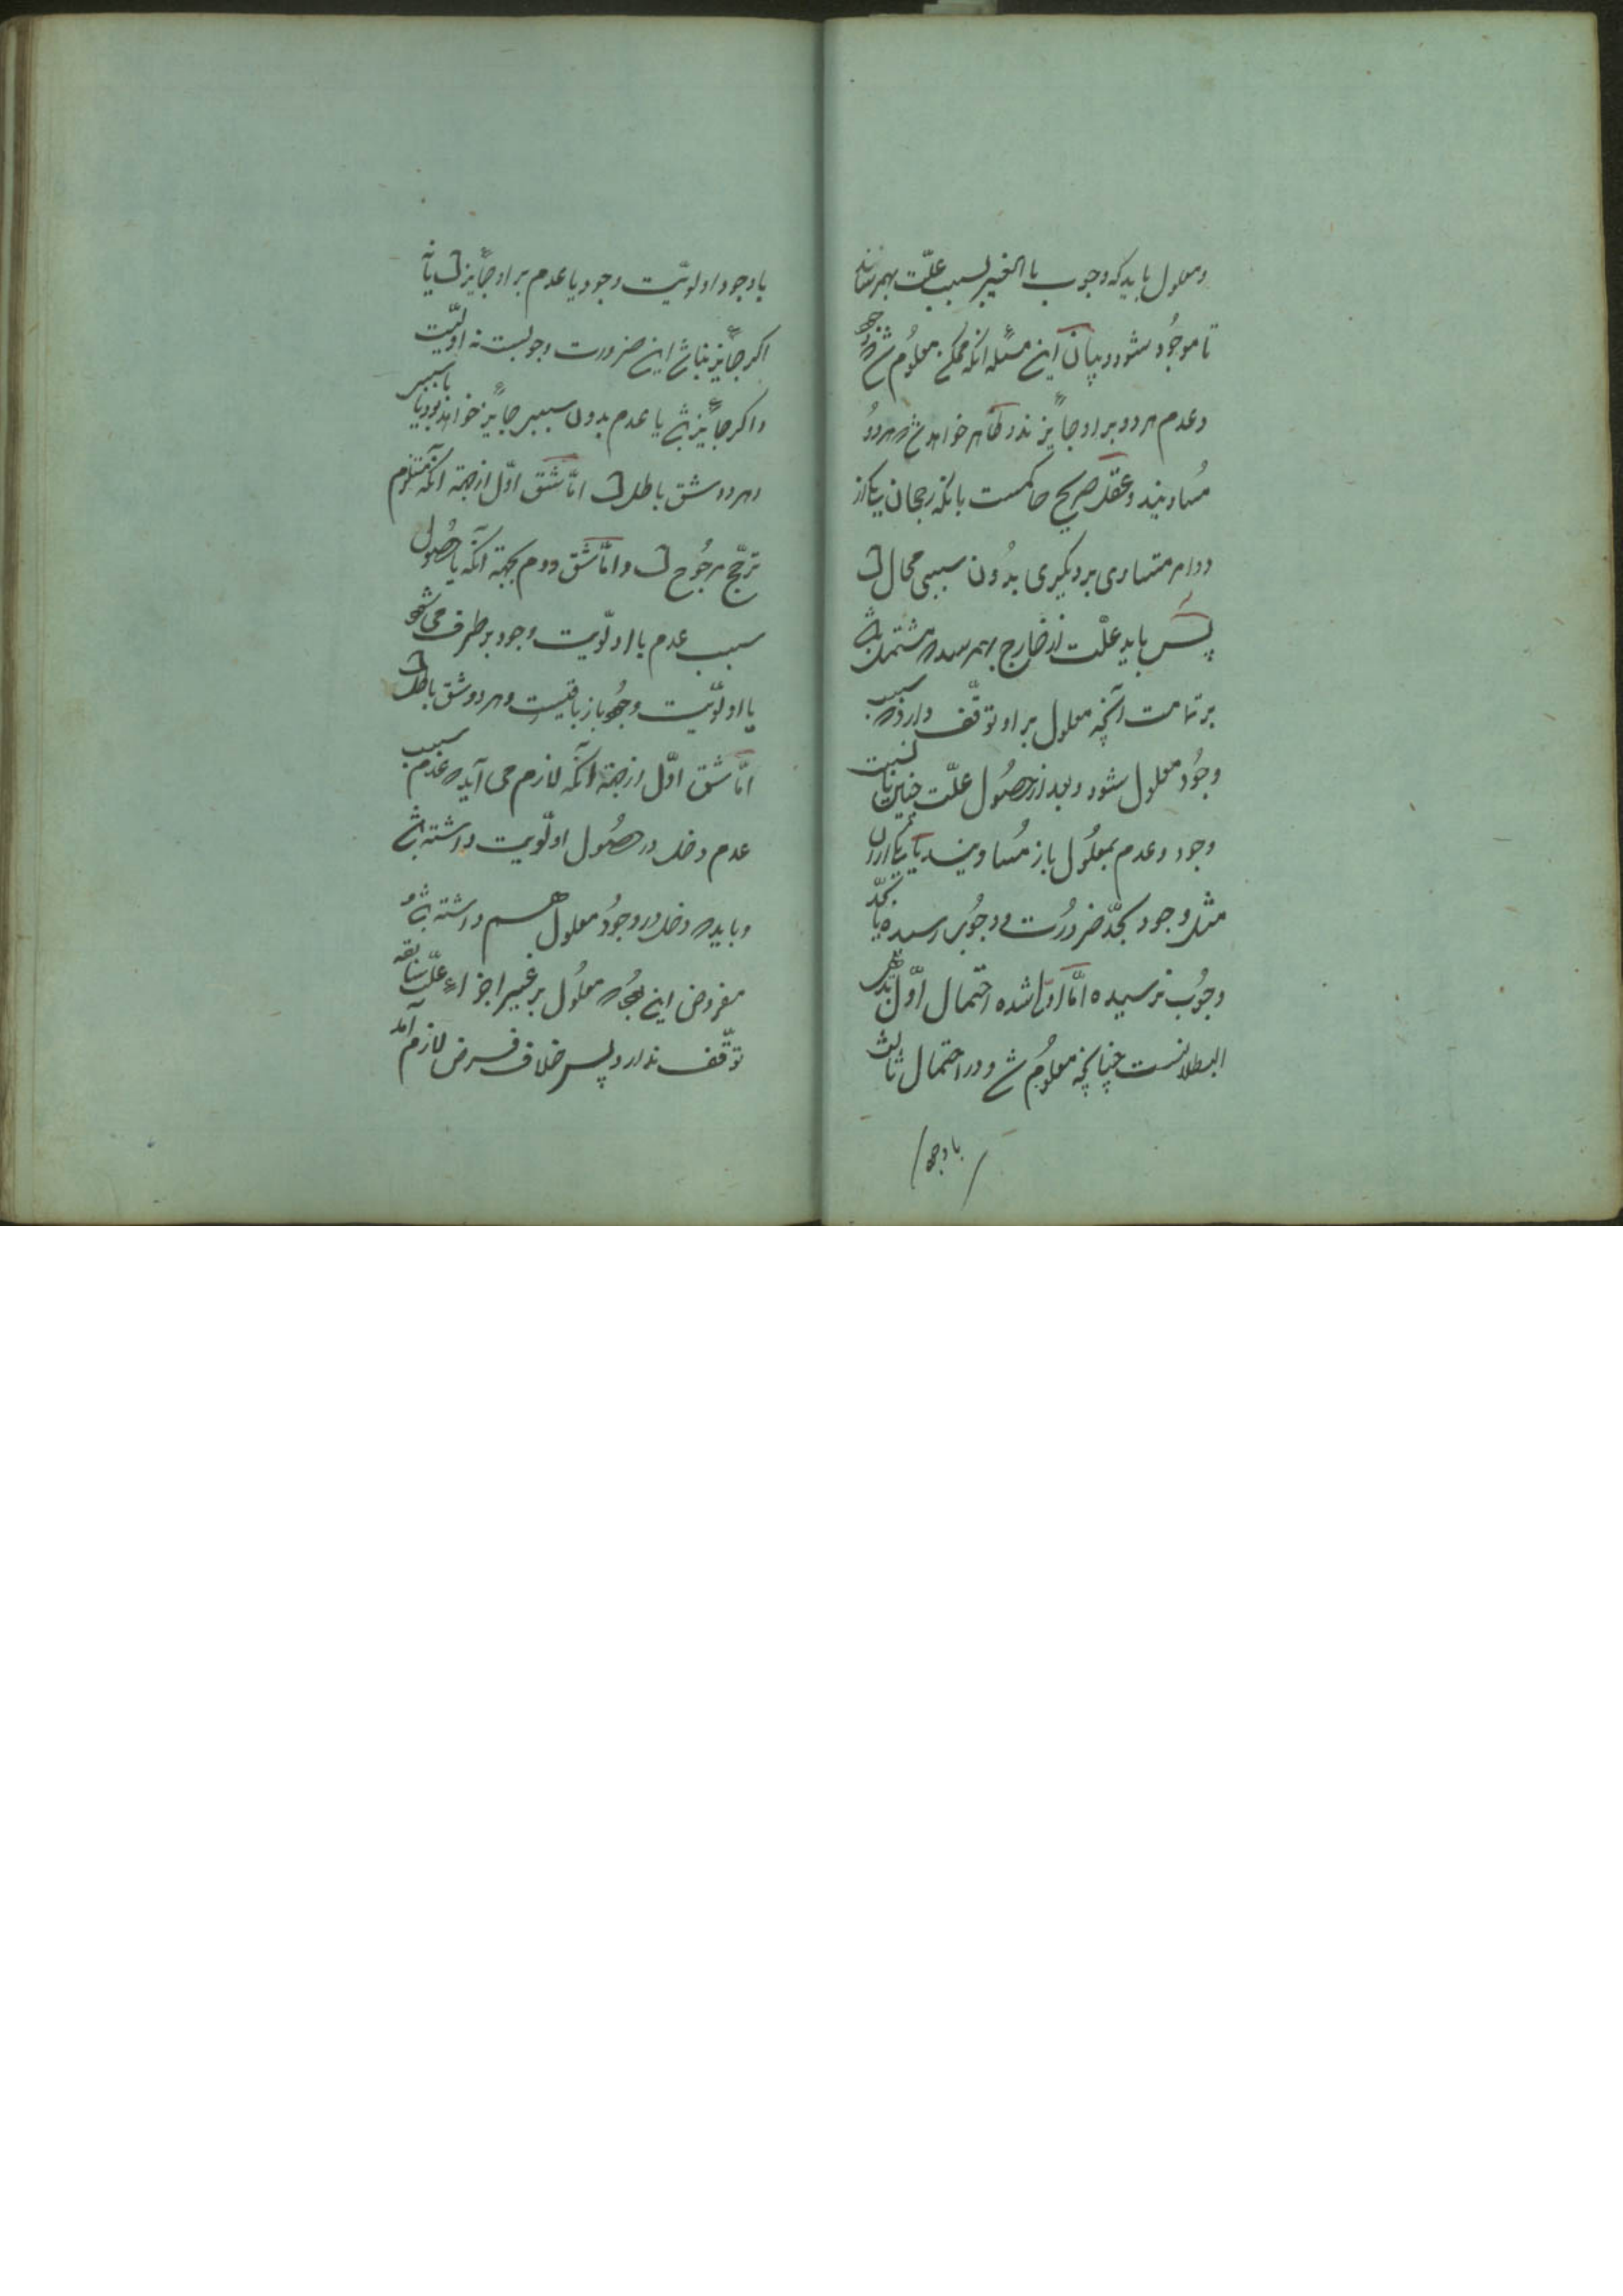 و معلول باید که وجوب با الغیر بسبب علّت بهمرساند
تا موجُود شود و بیان این مسئله انکه ممکن معلُوم شد که وجود
و عدم هر دو بر او جایز ند و ظاهر خواهد شد که هر دوُ
مُساویند و عقل صریح حاکمست بانکه رجحان یکی از
دو امر متساوی بر دیکری بدُون سببی محال است
پس باید علّت از خارج بهمرسد که مشتمل باشد
بر تمامت آنچه معلول بر او توقّف دارد که سبب
وجُود معلول شود و بعد از حصُول علّت چنین یا نسبت
وجود و عدم بمعلُول باز مُساویند یا یکی از ان
مثل وجود بحدّ ضرورُت و وجوُب رسیده یا بحدّ
وجوُب نرسیده امّا اولی شده احتمال اوّل ظاهر
البطلانست چنانچه معلُوم شد و در احتمال ثالث
با وجود
با وجود اولویّت وجود یا عدم بر او جایز است یا نه
اکر جایز نباشد این ضرورت و وجوبست نه اولیّت
و اکر جایز باشد یا عدم بدون سببی جایز خواهد بود یا با سببی
و هر دو شق باطل است امّا شق اوّل از جهة آنکه مستلزم
ترجّح مرجُوح است و امّا شق دوم بجهة آنکه یا حصُول
سبب عدم با اولّویت وجود بر طرف می شود
یا اولّویت وجُود باز باقیست و هر دو شق باطل است
امّا شق اوّل از جهة آنکه لازم می آید که عدم سبب
عدم دخل در حصُول اولّویت داشته باشد
و باید که دخل در وجوُد معلول هم داشته باشد و
مفروض این بوُد که معلُول بر غیر اجزاء علّت سابقه
توقّف ندارد پس خلاف فرض لازم آمد